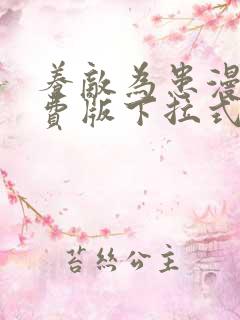 养敌为患漫
费版下拉式
苔丝公主